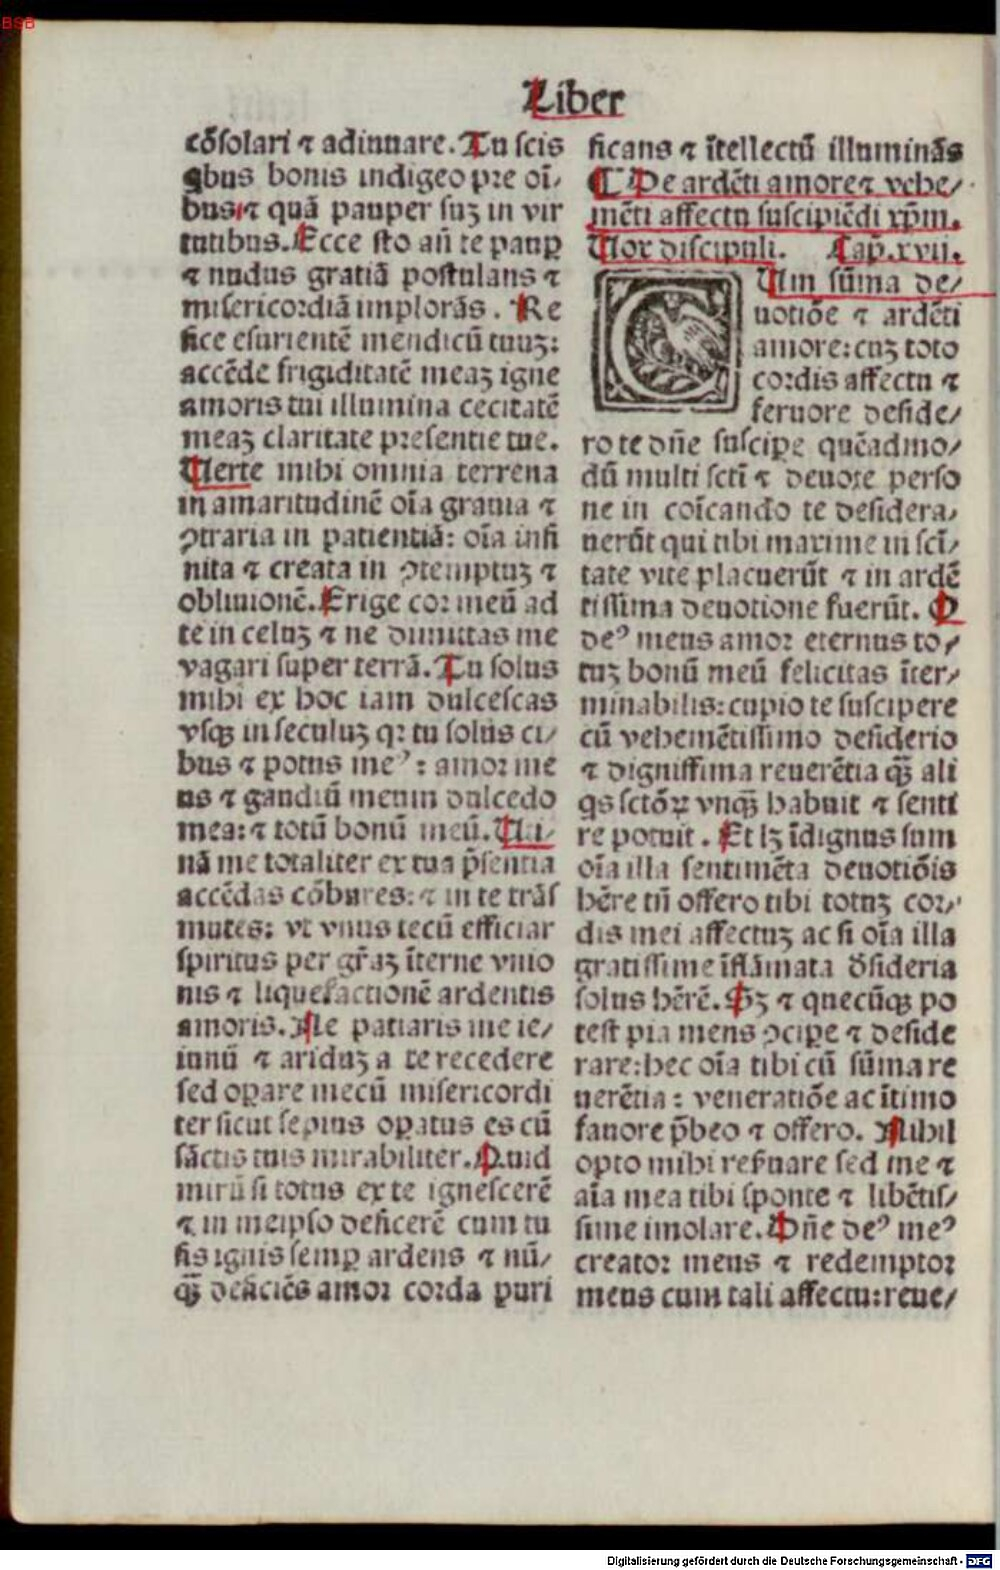 BSB
Liber
cōsolari ⁊ adiuuare. Tu scis
qbus bonis indigeo pre oī⸗
bus ⁊ quā pauper suꝫ in vir
tutibus. Ecce sto añ te paup
⁊ nudus gratiā postulans ⁊
misericordiā implorās. Re
fice esurientē mendicū tuuꝫ:
accēde frigiditatē meaꝫ igne
amoris tui illumina cecitatē
meaꝫ claritate presentie tue.
Uerte mihi omnia terrena
in amaritudinē oīa grauia ⁊
ꝯtraria in patientiā: oīa infi
nita ⁊ creata in ꝯtemptuꝫ ⁊
obliuionē. Erige cor meū ad
te in celuꝫ ⁊ ne dimittas me
vagari super terrā. Tu solus
mihi ex hoc iam dulcescas
vsqꝫ in seculuꝫ qꝛ tu solus ci⸗
bus ⁊ potus meꝰ: amor me
us ⁊ gaudiū meum dulcedo
mea: ⁊ totū bonū meū. Uti⸗
nā me totaliter ex tua p̄sentia
accēdas cōbures: ⁊ in te trās
mutes: vt vnus tecū efficiar
spiritus per gr̄aꝫ īterne vnio
nis ⁊ liquefactionē ardentis
amoris. Ne patiaris me ie⸗
iunū ⁊ ariduꝫ a te recedere
sed oꝑare mecū misericordi
ter sicut sepius oꝑatus es cū
sāctis tuis mirabiliter. Quid
mirū si totus ex te ignescerē
⁊ in meipso deficerē cum tu
sis ignis semꝑ ardens ⁊ nū⸗
qꝫ̄ deficiēs amor corda puri
ficans ⁊ ītellectū illuminās
¶ De ardēti amore ⁊ vehe⸗
mēti affectu suscipiēdi xp̄m.
Uox discipuli. Cap. xvii.
CUm sūma de⸗
uotiōe ⁊ ardēti
amore: cuꝫ toto
cordis affectu ⁊
feruore deside⸗
ro te dn̄e suscipe quēadmo⸗
dū multi scti ⁊ deuote perso
ne in coīcando te desidera⸗
uerūt qui tibi maxime in scī⸗
tate vite placuerūt ⁊ in ardē
tissima deuotione fuerūt. O
deꝰ meus amor eternus to⸗
tuꝫ bonū meū felicitas īter⸗
minabilis: cupio te suscipere
cū vehemētissimo desiderio
⁊ dignissima reuerētia qꝫ̄ ali
qs sctōꝝ vnqꝫ̄ habuit ⁊ senti
re potuit. Et lꝫ īdignus sum
oīa illa sentimēta deuotiōis
hēre tn̄ offero tibi totuꝫ cor⸗
dis mei affectuꝫ ac si oīa illa
gratissime īflāmata d̄sideria
solus hērē. Sꝫ ⁊ quecūqꝫ po
test pia mens ꝯcipe ⁊ deside
rare: hec oīa tibi cū sūma re
uerētia: veneratiōe ac ītimo
fauore p̄beo ⁊ offero. Nihil
opto mihi reẜuare sed me ⁊
aīa mea tibi sponte ⁊ libētis⸗
sime imolare. Dn̄e deꝰ meꝰ
creator meus ⁊ redemptor
meus cum tali affectu: reue⸗
Digitalisierung gefördert durch die Deutsche Forschungsgemeinschaft - DFG